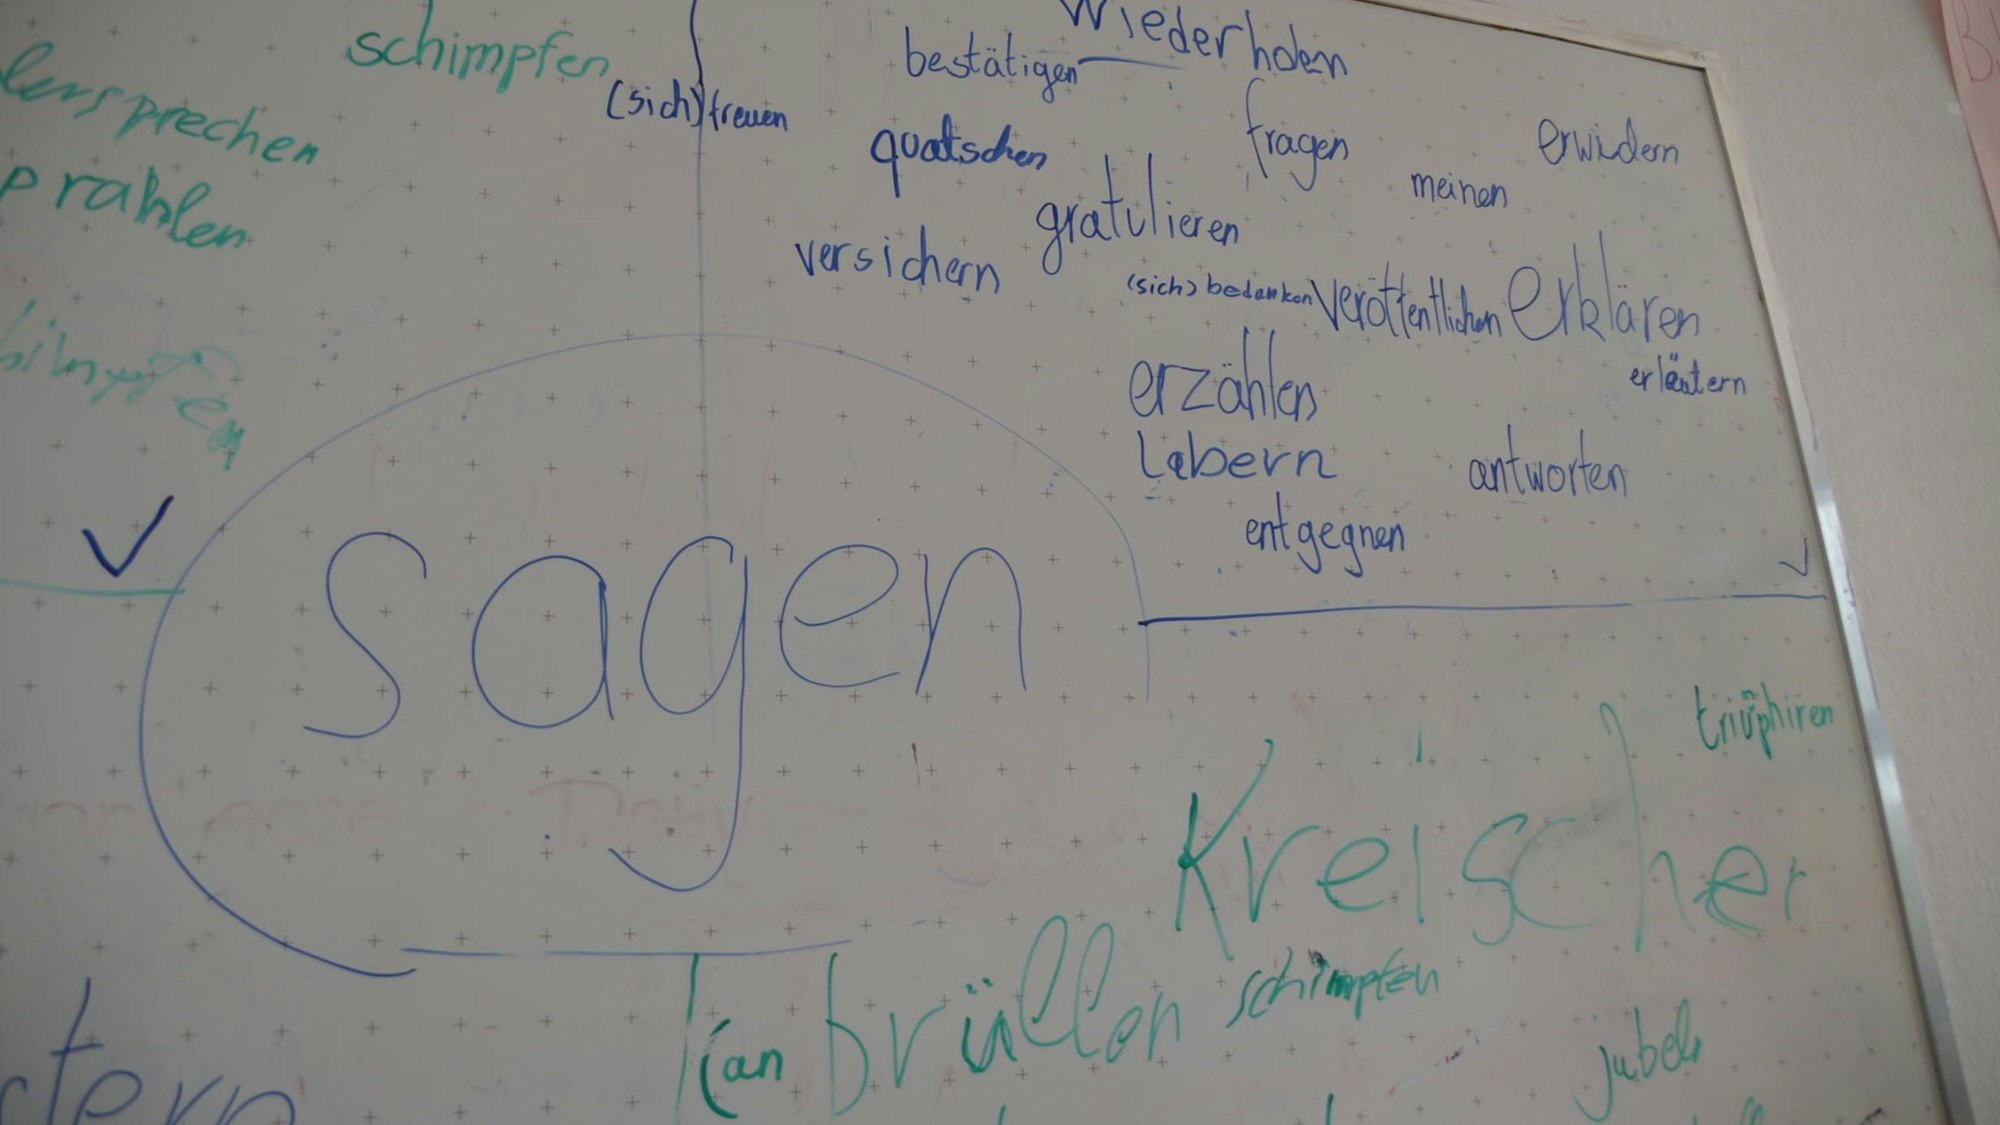 schimpfen
prahlen
Wiederholen
bestätigen
(sich) freuen
quatschen
fragen
erwidern
meinen
gratulieren
versichern
(sich) bedanken
veröffentlichen
erklären
erläutern
erzählen
Labern
antworten
entgegnen
sagen
triüphiren
Kreischen
(an
brüllen
schimpfen
jubeln